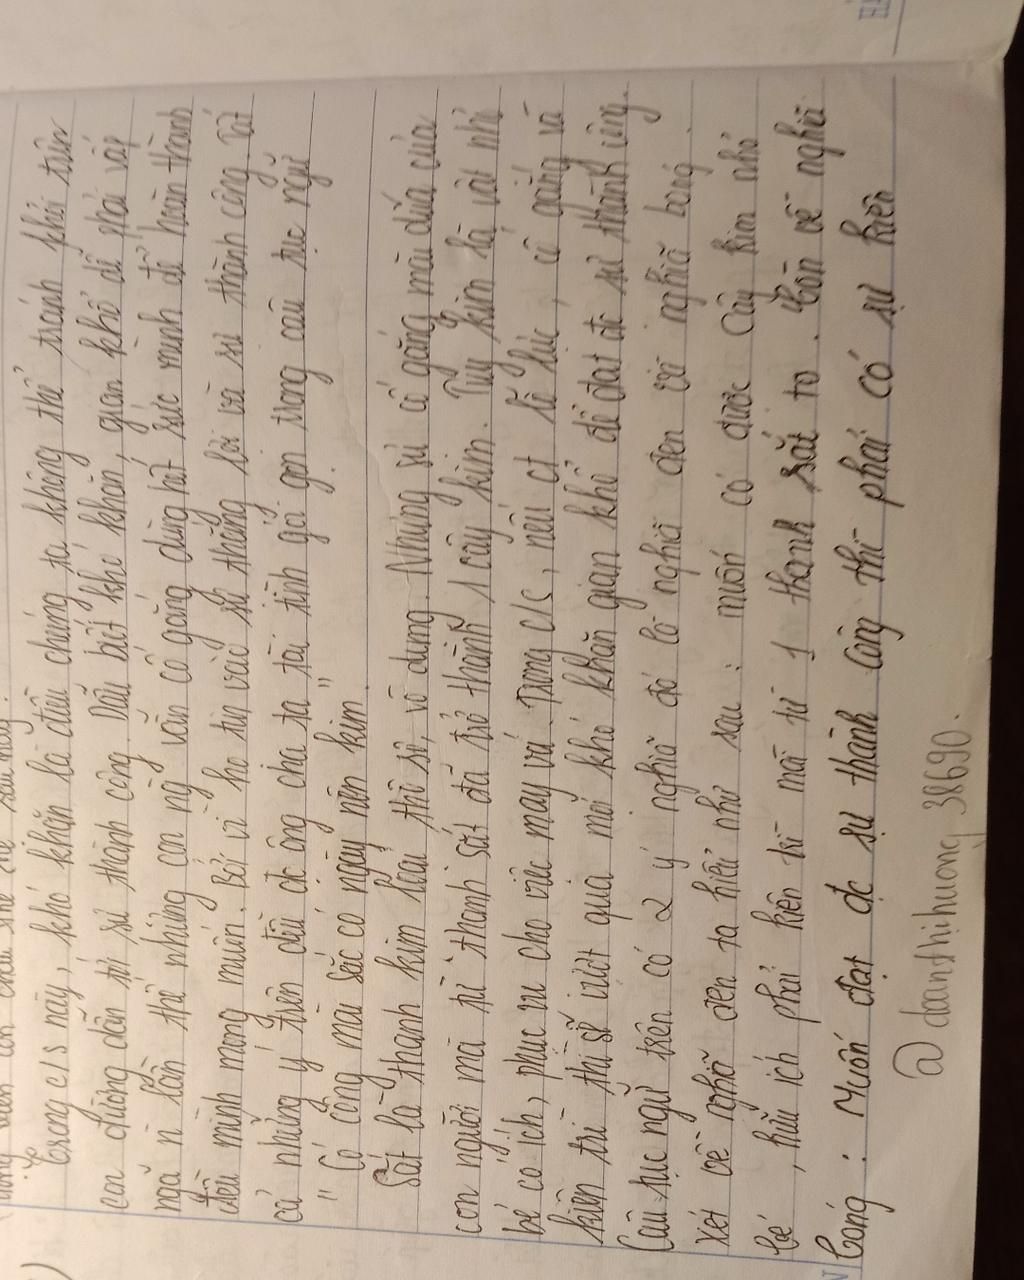 con cháu
Trong c/s này, khó khăn là điều chúng ta không thể tránh khỏi trên
con đường dẫn tới sự thành công. Dẫu biết khó khăn, gian khổ dễ phải vấp
ngã n lần thế nhưng con ng vẫn cố gắng dùng hết sức mình để hoàn thành
điều mình mong muốn. Bởi vì họ tin vào sự thắng lợi và sự thành công. Tất
cả những ý trên đều đc ông cha ta tài tình gói gọn trong câu tục ngữ
" Có công mài sắc có ngày nên kim "
Sắt là thanh kim loại thô sơ, vô dụng. Nhưng sự cố gắng mài dũa của
con người mà từ thanh sắt đã trở thành 1 cây kim. Tuy kim là vật nhỏ
bé có ích, phục vụ cho việc may vá. Trong c/s, nếu ct nỗ lực, cố gắng và
kiên trì thì sẽ vượt qua mọi khó khăn gian khổ để đạt đc sự thành công.
Câu tục ngữ trên có 2 ý nghĩa đó là nghĩa đen và nghĩa bóng.
Xét về nghĩa đen ta hiểu như sau : muốn có được cây kim nhỏ
bé, hữu ích phải kiên trì mài từ 1 thanh sắt to. Còn về nghĩa
bóng : Muốn đạt đc sự thành công thì phải có sự kiên
@doanthihuong38690.
HẢ